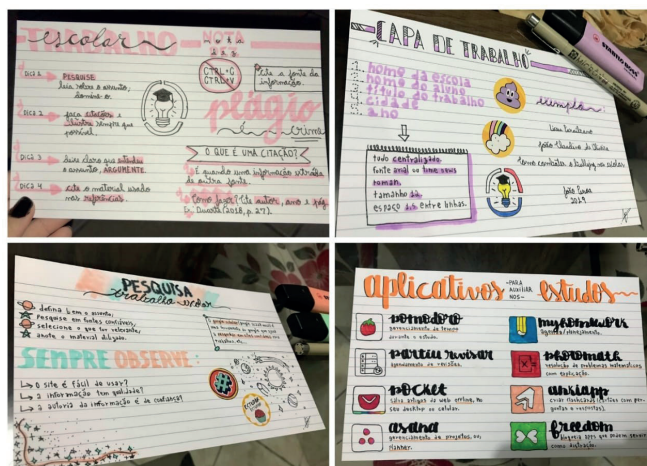 TRABALHO
escolar
NOTA
DICA 1
PESQUISE
leia sobre o assunto,
domine-o.
DICA 2
faça citações e
sempre que
possível.
DICA 3
deixe claro que entendeu
o assunto, ARGUMENTE.
DICA 4
cite o material usado
nas referências.
CTRL+C
CTRL+V
Cite a fonte da
informação.
plágio
é crime
O QUE É UMA CITAÇÃO?
É quando uma informação extraída
de outra fonte.
Como fazer? Cite autor, ano e pág
Duarte (2018, p. 27).
CAPA DE TRABALHO
1. nome da escola
2. nome do aluno
3. título do trabalho
4. cidade
5. ano
tudo centralizado.
fonte arial ou time news
roman.
tamanho 12.
espaço entre linhas.
exemplo:
João
2019
STABILO BOSS
PESQUISA
trabalho escolar
defina bem o assunto,
pesquise em fontes confiáveis,
selecione o que for relevante,
anote o material utilizado.
SEMPRE OBSERVE:
o site é fácil de usar?
a informação tem qualidade?
a autoria da informação é de confiança?
aplicativos -PARA AUXILIAR NOS- estudos
pomodoro
gerenciamento do tempo
durante o estudo.
partiu revisar
agendamento de revisões.
pocket
salva artigos da web offline, no
seu desktop ou celular.
asana
gerenciamento de projetos, ou,
planner.
myhomework
agenda/planejamento.
photomath
resolução de problemas matemáticos
com explicação.
ankiapp
criar flashcards (cartões com per-
guntas e respostas).
freedom
bloqueia apps que podem servir
como distração.